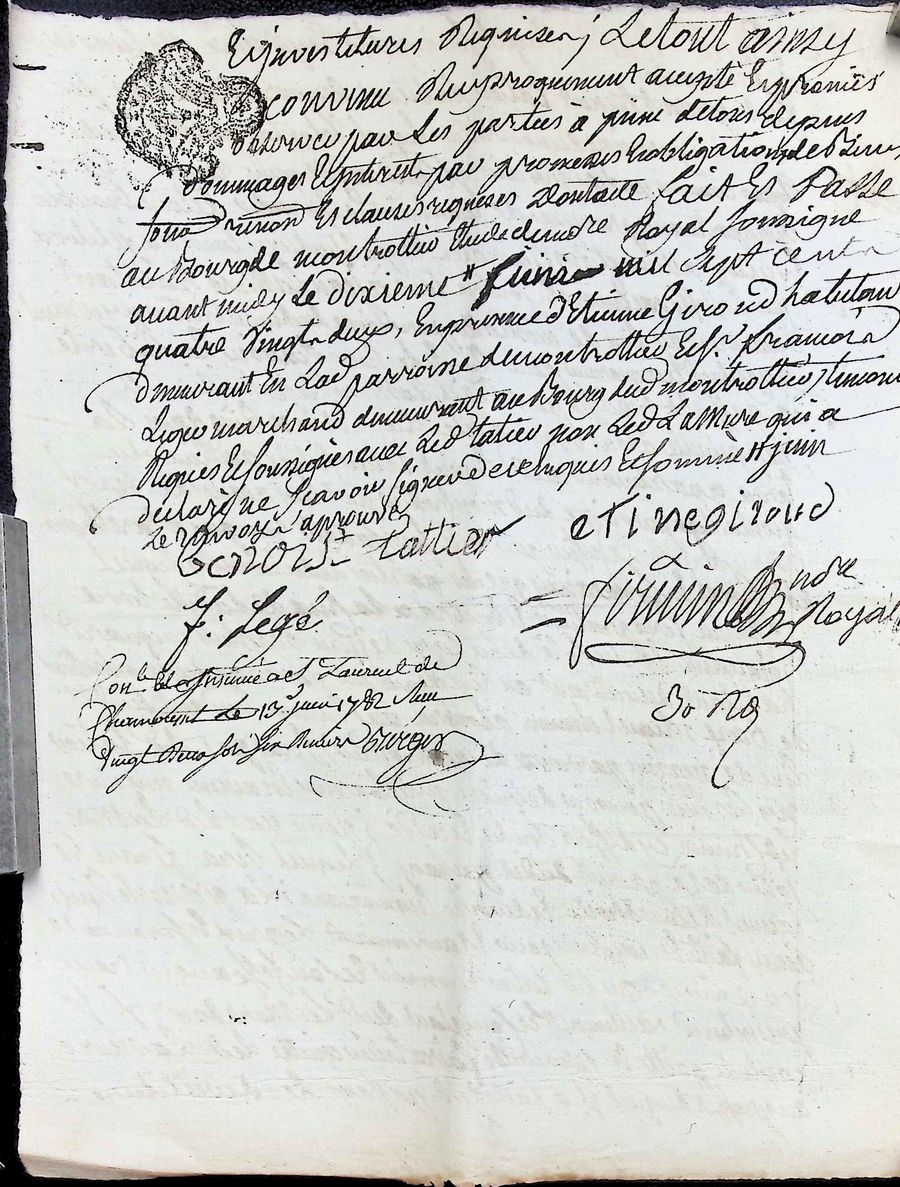 Et investitures Requises, Le tout ainsy
convenu Reciproquement accepté Et promis
observer par Les parties à peine de tous depens
dommages Et interets par promesses Et obligations de Biens
renon Et clauses requises Dont acte fait Et Passé
au Bourg de montrottier Etude du nore Royal soussigné
avant midy Le dixieme # mil sept cents
quatre vingt deux, En presence d'Etienne Giroud habitant
demeurant En Lad parroisse de montrottier Et sr. francois
marchand demeurant au Bourg dud montrottier, temoins
Requis Et soussignés avec Led tatier non Led Lamure qui a
declaré ne scavoir signer de ce enquis Et sommé # juin
Le renvoy aprouvé
Benoist tattier etinegiroud
J: Legé nore Royal
Con.lé et insinué a St Laurent de
Chamousset le 13 juin 1782 Reçu
vingt deux sols six deniers
30